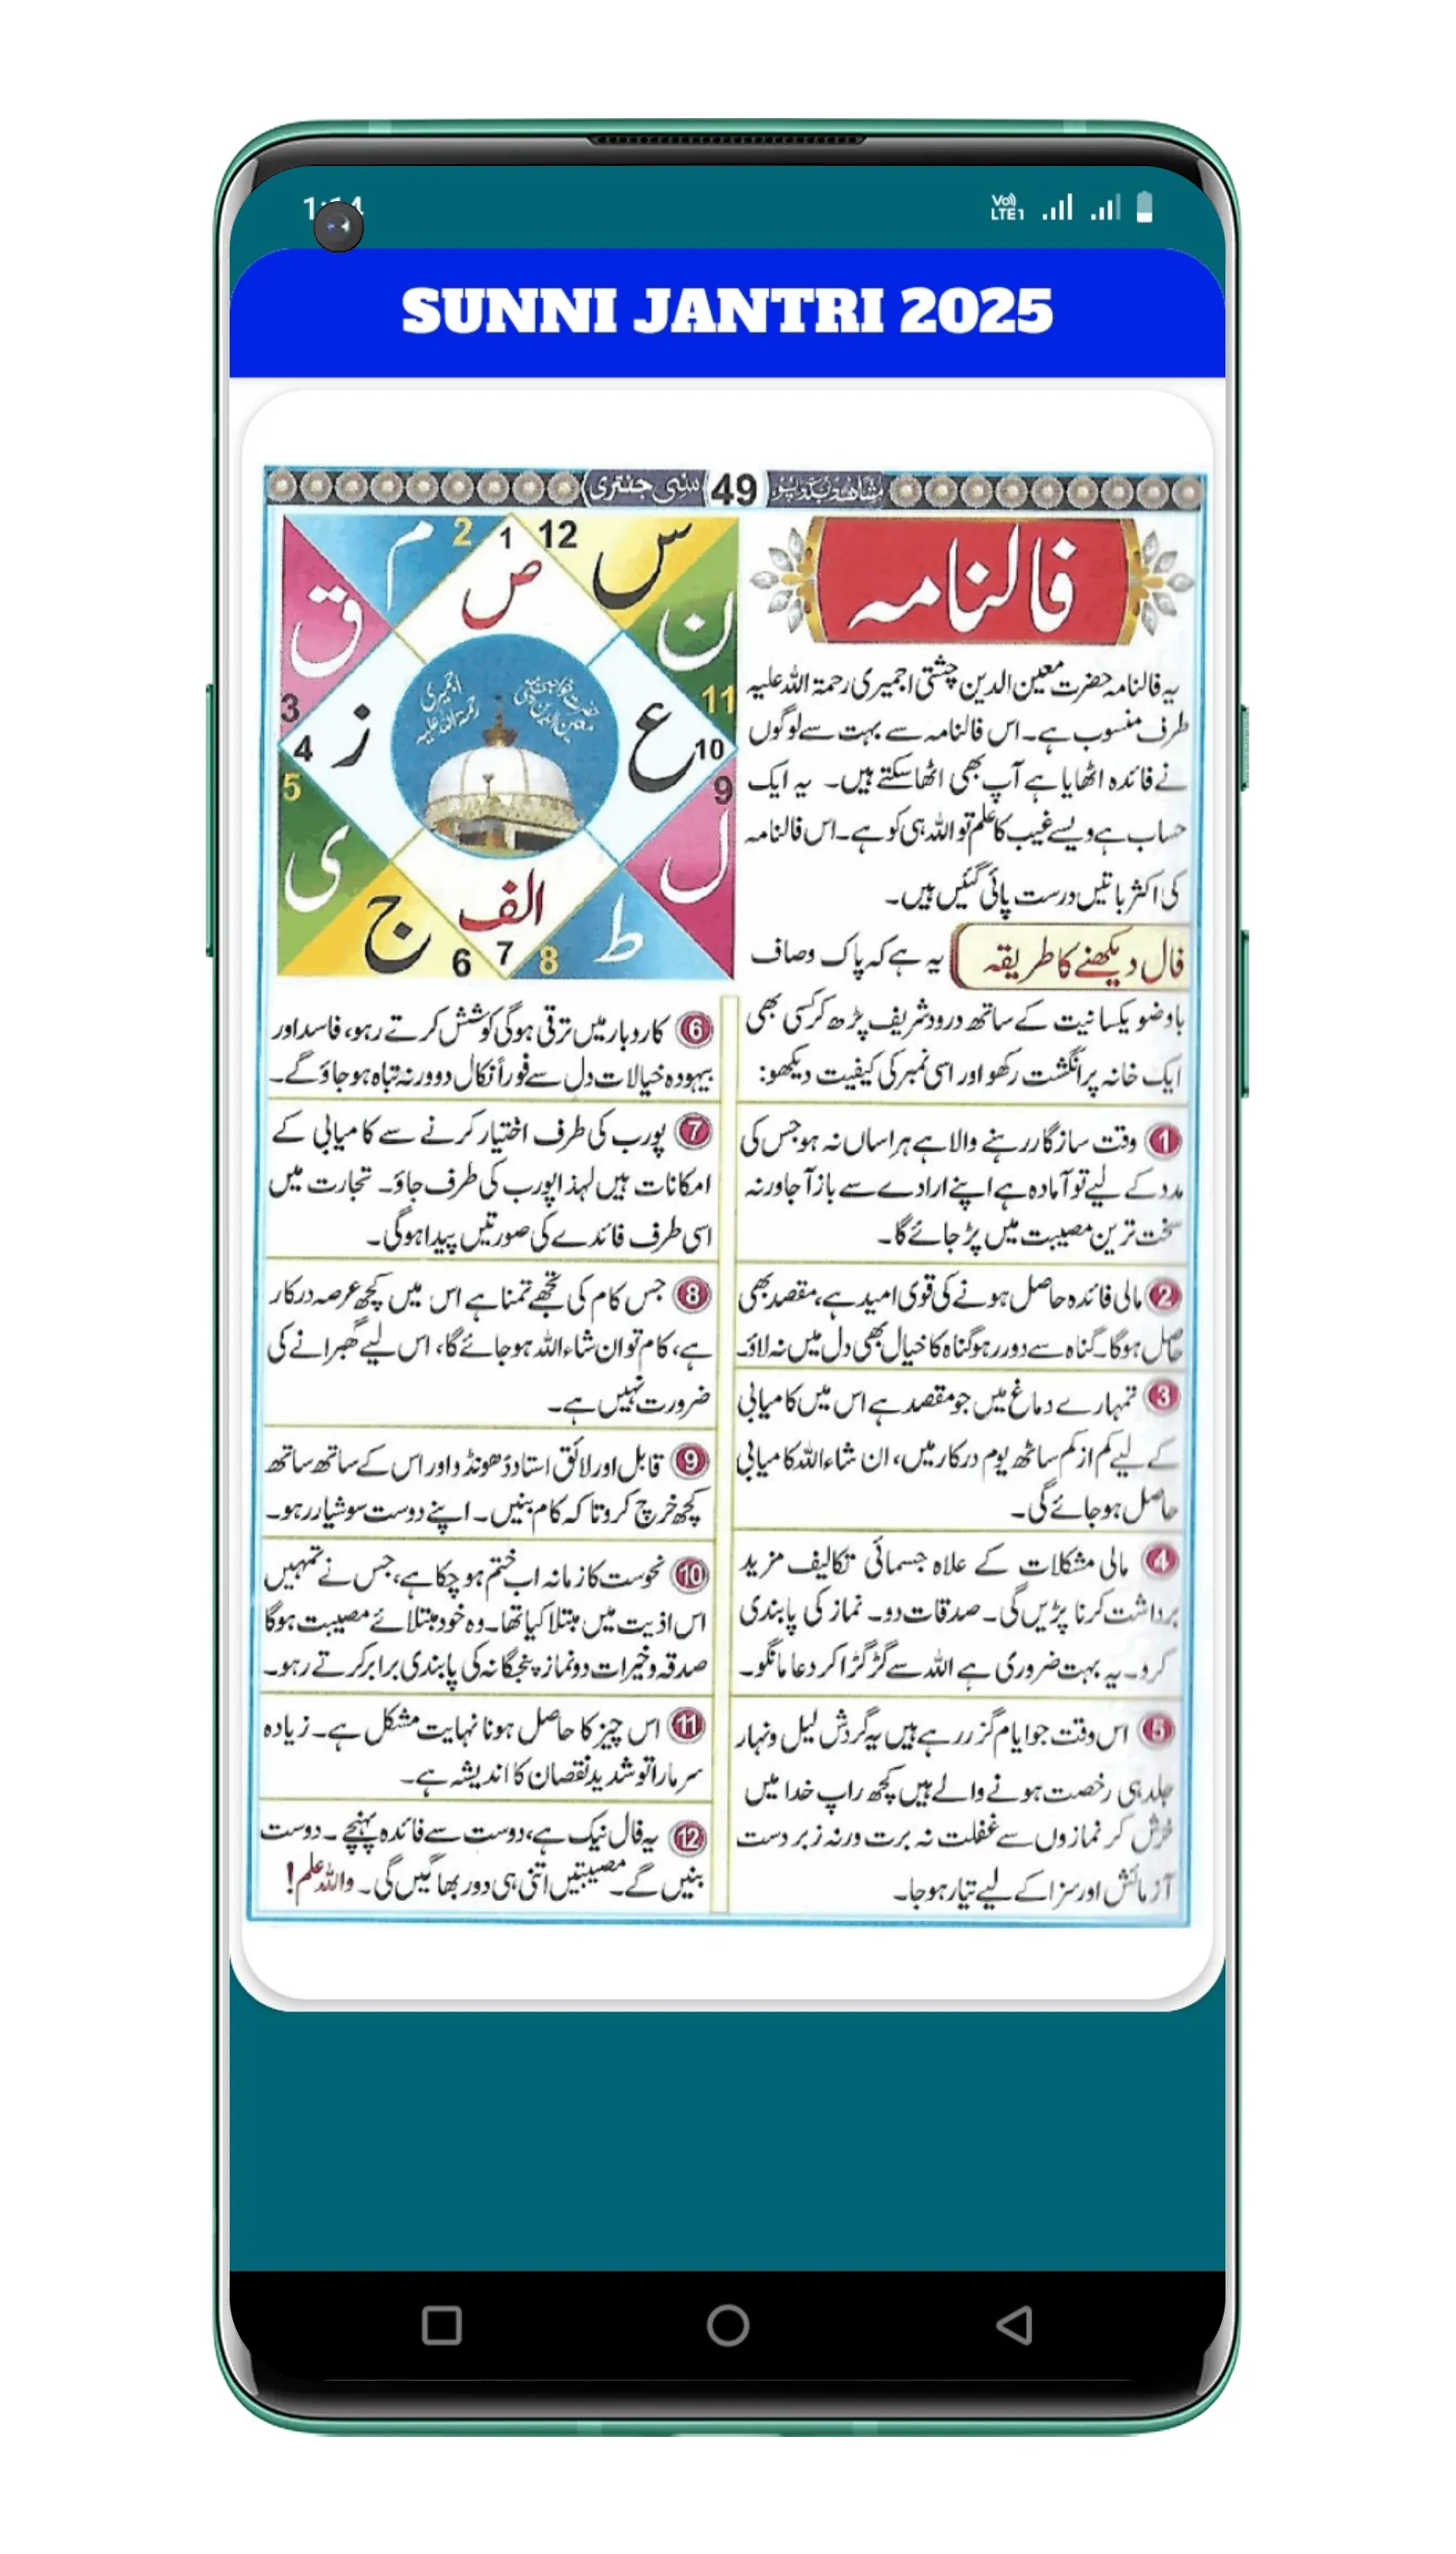 1:14
Vo) LTE1
SUNNI JANTRI 2025
سنی جنتری 49
فالنامہ
12 س
1 ص
2 م
ق 3
ز 4
5 ی
ج 6
الف 7
8 ط
9 ل
ع 10
ن 11
اجمیری رحمۃ اللہ علیہ
یہ فالنامہ حضرت معین الدین چشتی اجمیری رحمۃ اللہ علیہ
طرف منسوب ہے۔ اس فالنامہ سے بہت سے لوگوں
نے فائدہ اٹھایا ہے آپ بھی اٹھا سکتے ہیں۔ یہ ایک
حساب ہے ویسے غیب کا علم تو اللہ ہی کو ہے۔ اس فالنامہ
کی اکثر باتیں درست پائی گئیں ہیں۔
فال دیکھنے کا طریقہ یہ ہے کہ پاک وصاف
باوضو یکسانیت کے ساتھ درود شریف پڑھ کر کسی بھی
ایک خانہ پر انگشت رکھو اور اسی نمبر کی کیفیت دیکھو:
1 وقت سازگار رہنے والا ہے ہراساں نہ ہو جس کی
مدد کے لیے تو آمادہ ہے اپنے ارادے سے باز آجا ورنہ
سخت ترین مصیبت میں پڑ جائے گا۔
2 مالی فائدہ حاصل ہونے کی قوی امید ہے، مقصد بھی
حاصل ہوگا۔ گناہ سے دور رہو گناہ کا خیال بھی دل میں نہ لاؤ۔
3 تمہارے دماغ میں جو مقصد ہے اس میں کامیابی
کے لیے کم از کم ساٹھ یوم درکار میں، ان شاء اللہ کامیابی
حاصل ہو جائے گی۔
4 مالی مشکلات کے علاہ جسمائی تکالیف مزید
برداشت کرنا پڑیں گی۔ صدقات دو۔ نماز کی پابندی
کرو۔ یہ بہت ضروری ہے اللہ سے گڑگڑا کر دعا مانگو۔
5 اس وقت جو ایام گزر رہے ہیں یہ گردش لیل ونہار
جلد ہی رخصت ہونے والے ہیں کچھ راپ خدا میں
خرش کر نمازوں سے غفلت نہ برت ورنہ زبردست
آزمائش اور سزا کے لیے تیار ہو جا۔
6 کاردبار میں ترقی ہوگی کوشش کرتے رہو، فاسد اور
بیہودہ خیالات دل سے فوراً نکال دو ورنہ تباہ ہو جاؤ گے۔
7 پورب کی طرف اختیار کرنے سے کامیابی کے
امکانات ہیں لہذا پورب کی طرف جاؤ۔ تجارت میں
اسی طرف فائدے کی صورتیں پیدا ہوگی۔
8 جس کام کی تجھے تمنا ہے اس میں کچھ عرصہ درکار
ہے، کام تو ان شاء اللہ ہو جائے گا، اس لیے گھبرانے کی
ضرورت نہیں ہے۔
9 قابل اور لائق استاد ڈھونڈ واور اس کے ساتھ ساتھ
کچھ خرچ کرو تا کہ کام بنیں۔ اپنے دوست سو شیار رہو۔
10 نحوست کا زمانہ اب ختم ہو چکا ہے، جس نے تمہیں
اس اذیت میں مبتلا کیا تھا۔ وہ خود مبتلائے مصیبت ہوگا
صدقہ وخیرات دو نماز پنجگانہ کی پابندی برابر کرتے رہو۔
11 اس چیز کا حاصل ہونا نہایت مشکل ہے۔ زیادہ
سر مارا تو شدید نقصان کا اندیشہ ہے۔
12 یہ فال نیک ہے، دوست سے فائدہ پہنچے۔ دوست
بنیں گے۔ مصیبتیں اتنی ہی دور بھاگیں گی۔ واللہ علم!